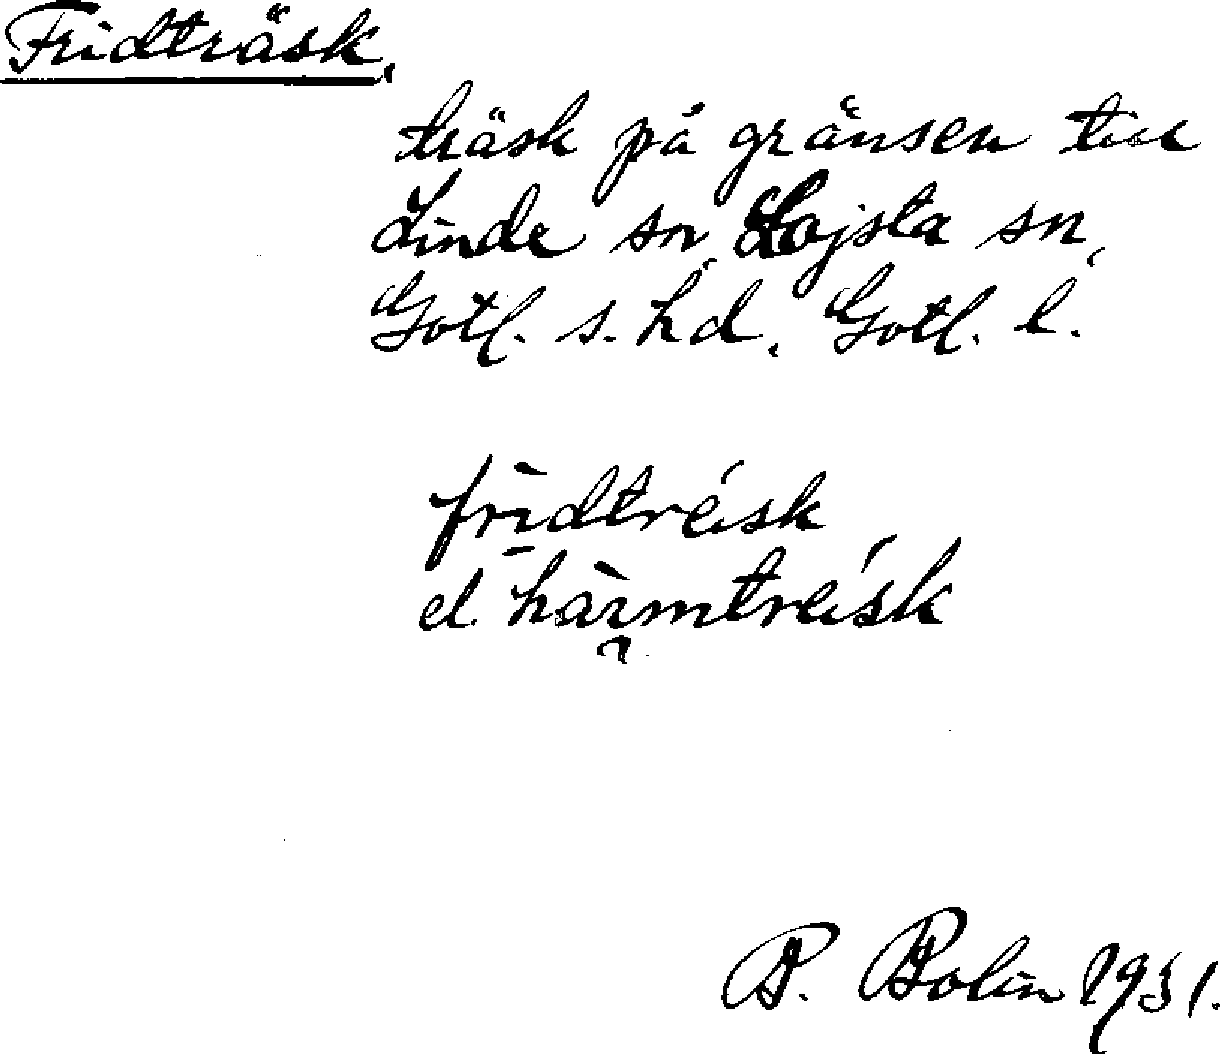 Fridträsk.
träsk på gränsen till
Linde sn, Lojsta sn,
Gotl. s. hd, Gotl. l.
frı̄̀dtréisk
el. hàrmtréisk
B. Bolin 1931.